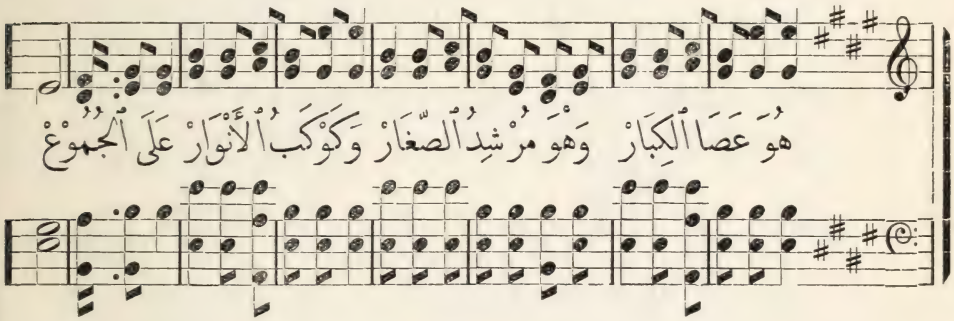 هُوَ عَصَا ٱلْكِبَارْ وَهْوَ مُرْشِدُ ٱلصِّغَارْ وَكَوْكَبُ ٱلْأَنْوَارْ عَلَى ٱلْجُمُوْعْ